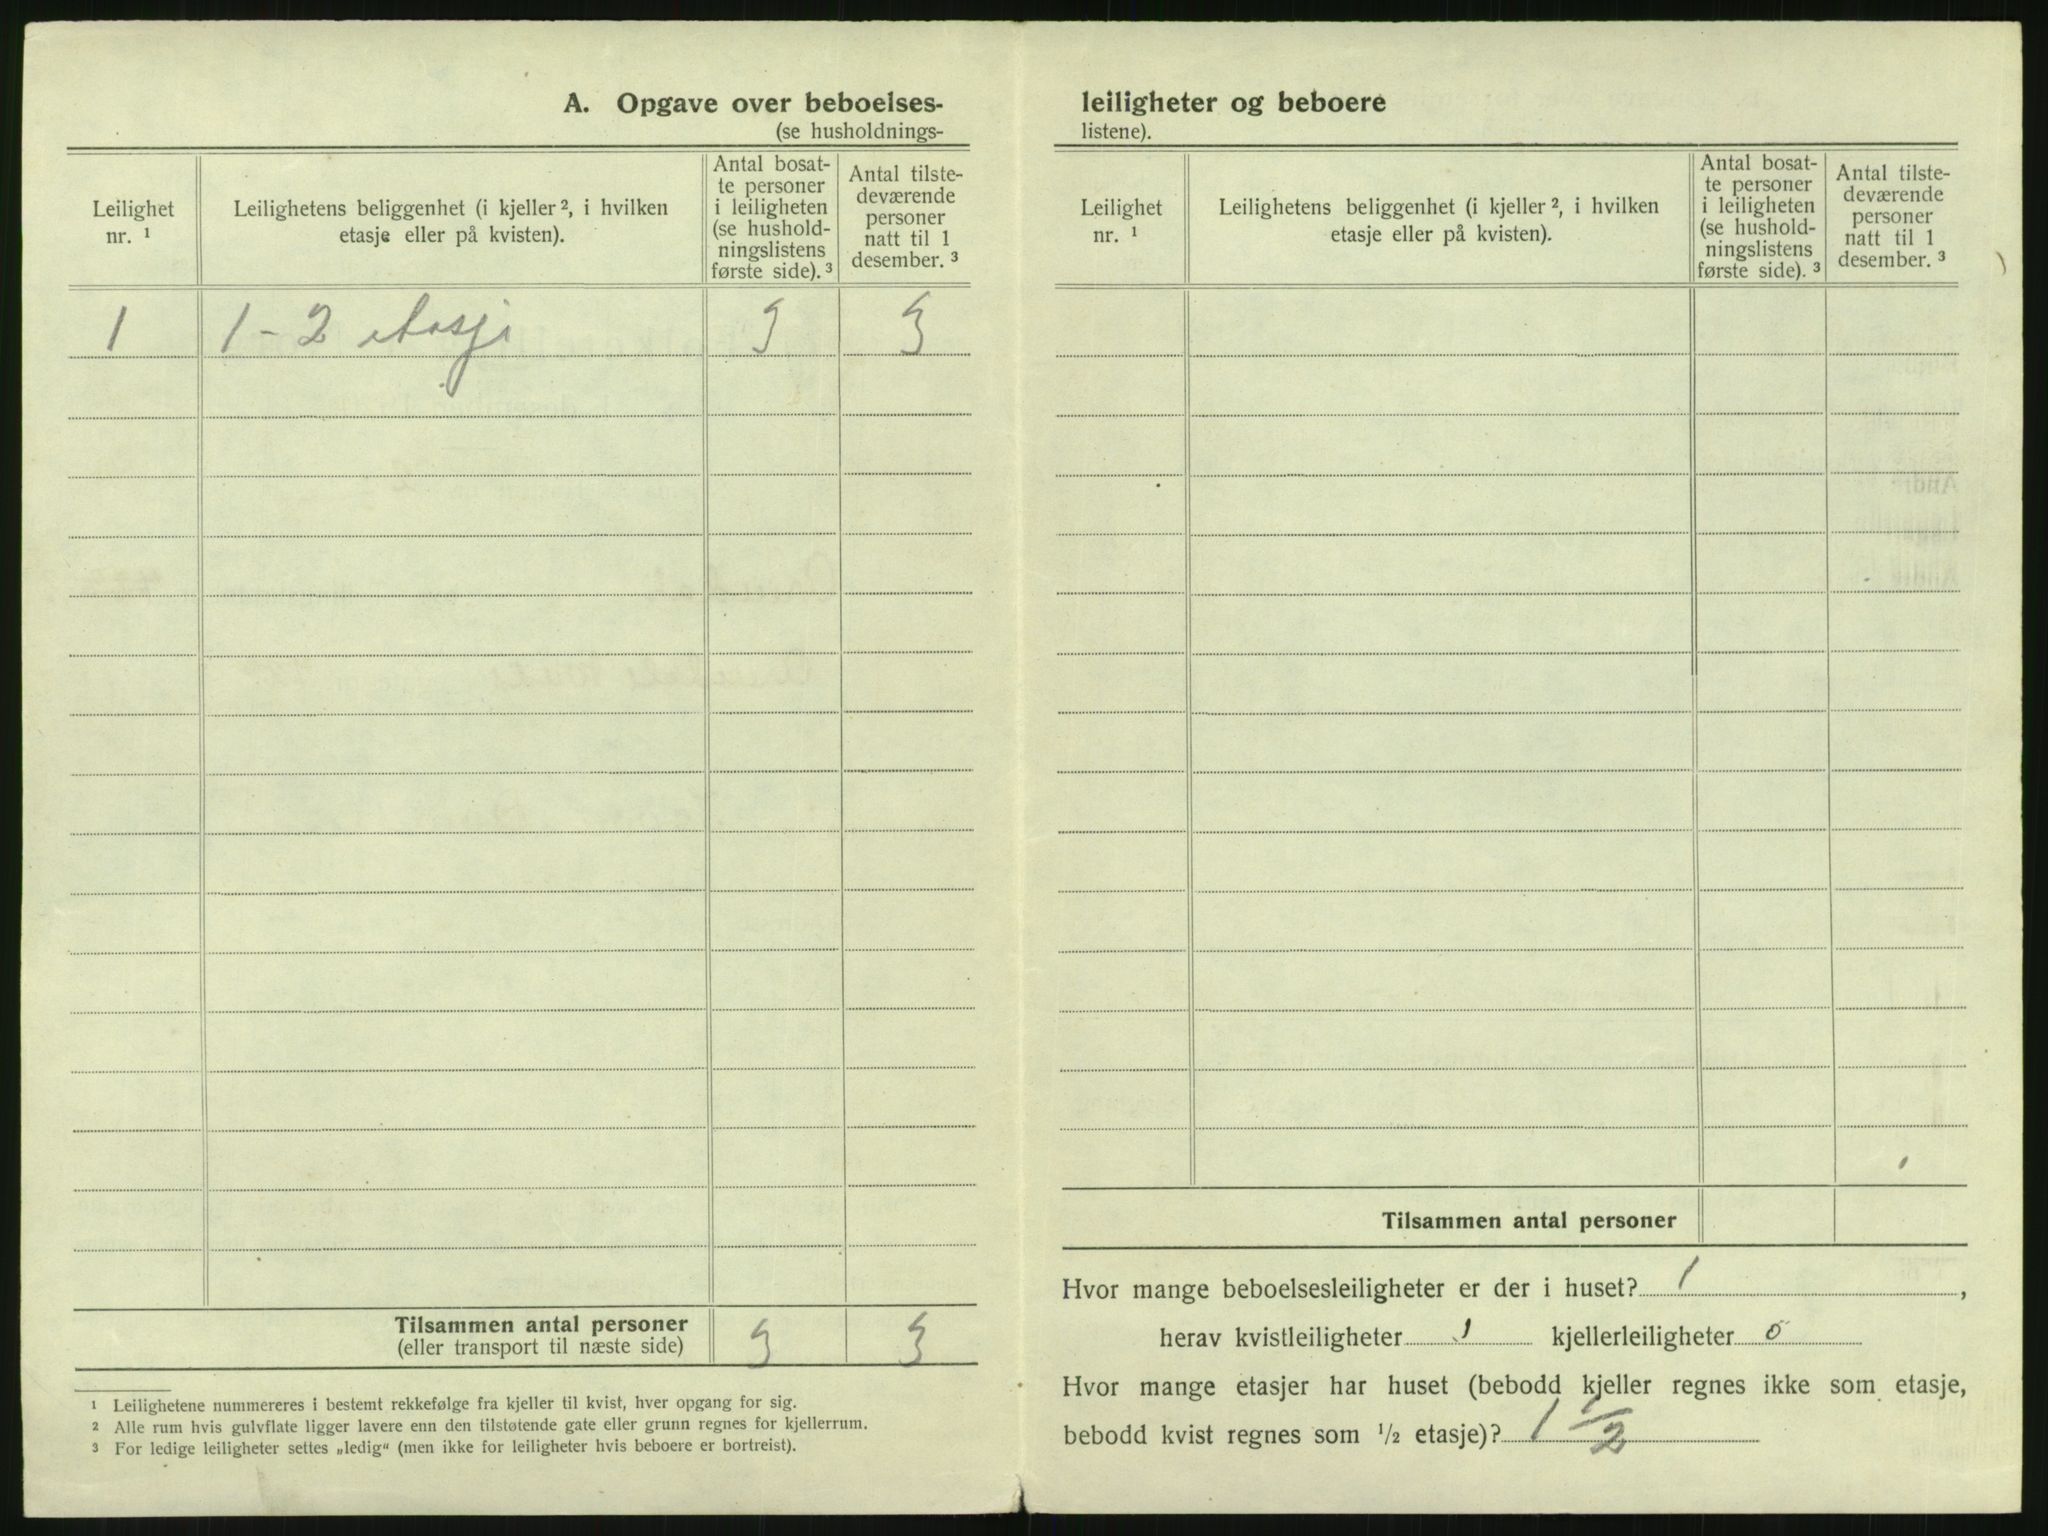 A. Opgave over beboelses-
(se husholdnings-
Leilighet nr. ¹
Leilighetens beliggenhet (i kjeller ², i hvilken etasje eller på kvisten).
Antal bosat-
te personer
i leiligheten
(se hushold-
ningslistens
første side). ³
Antal tilste-
deværende
personer
natt til 1
desember. ³
1 1-2 etasje 3 3
Tilsammen antal personer 3 3
(eller transport til næste side)
¹ Leilighetene nummereres i bestemt rekkefølge fra kjeller til kvist, hver opgang for sig.
² Alle rum hvis gulvflate ligger lavere enn den tilstøtende gate eller grunn regnes for kjellerrum.
³ For ledige leiligheter settes „ledig“ (men ikke for leiligheter hvis beboere er bortreist).
leiligheter og beboere
listene).
Leilighet nr. ¹
Leilighetens beliggenhet (i kjeller ², i hvilken etasje eller på kvisten).
Antal bosat-
te personer
i leiligheten
(se hushold-
ningslistens
første side). ³
Antal tilste-
deværende
personer
natt til 1
desember. ³
Tilsammen antal personer
Hvor mange beboelsesleiligheter er der i huset? 1,
herav kvistleiligheter 1 kjellerleiligheter 0
Hvor mange etasjer har huset (bebodd kjeller regnes ikke som etasje,
bebodd kvist regnes som ½ etasje)? 1 ½